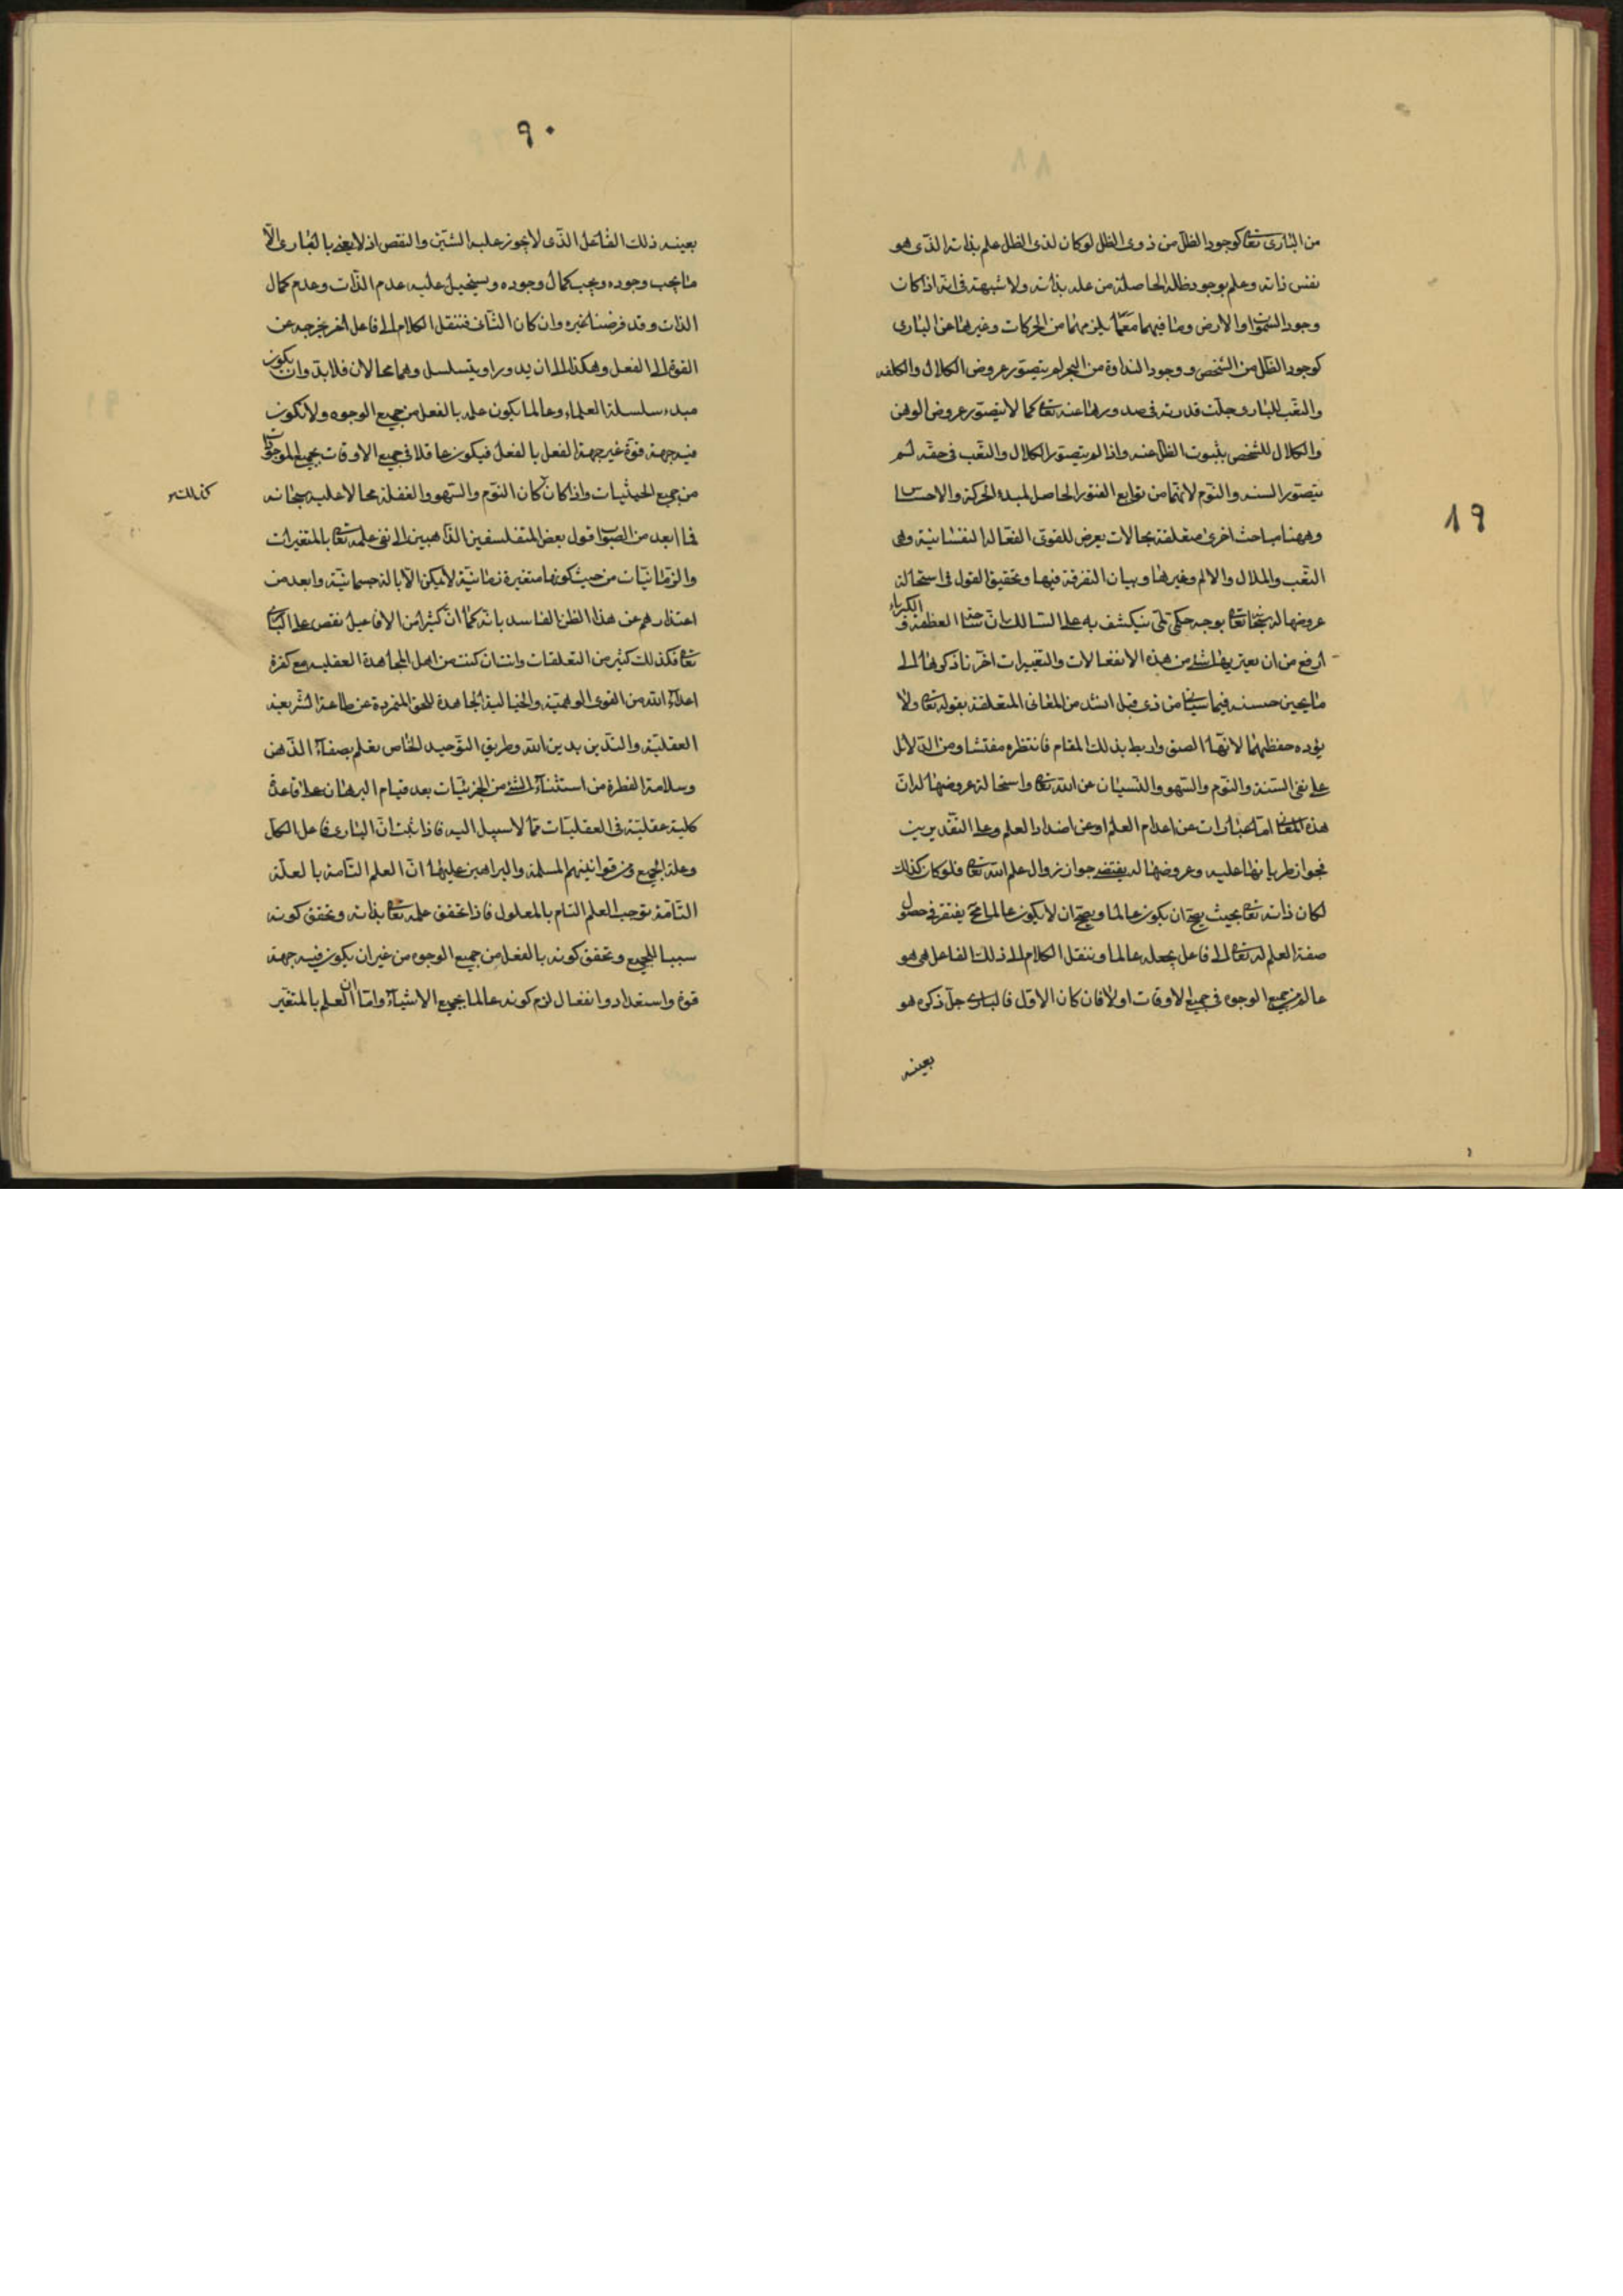 من البارى تعا كوجود الظل من ذوى الظل لو كان لذى الظل علم بذاته الذى هو
نفس ذاته وعلم بوجود ظله الحاصلة من علمه بذاته ولا شبهة فى انه اذا كان
وجود السموات والارض وما فيهما معما يلزمهما من الحركات وغيرها عن البارى
كوجود الظل من الشخص ووجود النداوة من البحر لم يتصور عروض الكلال والكلفه
والتعب للبارى جلت قدرته فى صدورها عنه تعا كما لا يتصور عروض الوهن
والكلال للشخص بثبوت الظل عنه واذا لم يتصور الكلال والتعب فى حقه لم
يتصور السنه والنوم لانهما من توابع الفتور الحاصل لمبدء الحركة والاحساس
وههنا مباحث اخرى متعلقة بحالات يعرض للقوى الفعاله النفسانية وهى
التعب والملال والالم وغيرها وبيان التفرقة فيها وتحقيق القول فى استحالة
عروضها له سبحانه تعا بوجه حكمى ينكشف به على السالك بان جناب العظمة و الكبرياء
ارفع من ان يعتريها شئ من هذه الانفعالات والتغييرات اخرنا ذكرها الى
ما يحين حسنه فيما سياتى من ذى قبل انشد من المعانى المتعلقة بقوله تعا ولا
يؤده حفظهما لانها الصق واربط بذلك المقام فانتظره مفتشا ومن الدلائل
على نفى السنة والنوم والسهو والنسيان عن الله تعا واستحالة عروضها له ان
هذه المعانى اما عبارات عن اعدام العلم او عن اضداد العلم وعلى التقديرين
فجواز طريانها عليه وعروضها له يقتضى جواز زوال علم الله تعا فلو كان كذلك
لكان ذاته تعا بحيث يصح ان يكون عالما ويصح ان لا يكون عالما فح يفتقر فى حصول
صفة العلم له تعا الى فاعل يجعله عالما وننقل الكلام الى ذلك الفاعل هل هو
عالم من جميع الوجوه فى جميع الاوقات اولا فان كان الاول فالبارى جل ذكره هو
بعينه
١٩
٩٠
بعينه ذلك الفاعل الذى لا يجوز عليه الشين والنقص اذ لا يعنى بالبارى الا
ما يجب وجوده ويجب كمال وجوده ويستحيل عليه عدم الذات وعدم كمال
الذات وقد فرضنا غيره وان كان الثانى فننقل الكلام الى فاعل اخر يخرجه عن
القوة الى الفعل وهكذا الى ان يدور او يتسلسل وهما محالان فلا بد وان يكون
مبدء سلسلة العلماء وعالما يكون علمه بالفعل من جميع الوجوه ولا تكون
فيه جهة قوة غير جهة الفعل بالفعل فيكون عاقلا فى جميع الاوقات بجميع الموجودات
من جميع الحيثيات واذا كان كان النوم والسهو والغفلة محالا عليه سبحانه
كذلك
فما ابعد من الصواب قول بعض المتفلسفين الذاهبين الى نفى علمه تعا بالمتغيرات
والزمانيات من حيث كونها متغيرة زمانية لا يمكن الا بالة جسمانية وابعد من
اعتذارهم عن هذا الظن الفاسد بانه كما ان كثيرا من الافاعيل نقص على البارى
تعا فكذلك كثير من التعلقات وانت ان كنت من اهل المجاهدة العقليه مع كفرة
اعداء الله من القوى الوهمية والخيالية الجاهدة للحق المتمردة عن طاعة الشريعة
العقلية والتدين بدين الله وطريق التوحيد الخاص تعلم بصفاء الذهن
وسلامة الفطرة من استثناء الشئ من الجزئيات بعد قيام البرهان على قاعدة
كلية عقلية فى العقليات مما لا سبيل اليه فاذا ثبت ان البارى فاعل الكل
وعلة الجميع ومن قوانينهم المسلمة والبراهين عليها ان العلم التامة بالعلة
التامة توجب العلم التام بالمعلول فاذا تحقق علمه تعا بذاته وتحقق كونه
سببا للجميع وتحقق كونه بالفعل من جميع الوجوه من غير ان يكون فيه جهة
قوة واستعداد وانفعال لزم كونه عالما بجميع الاشياء واما ان العلم بالمتغير